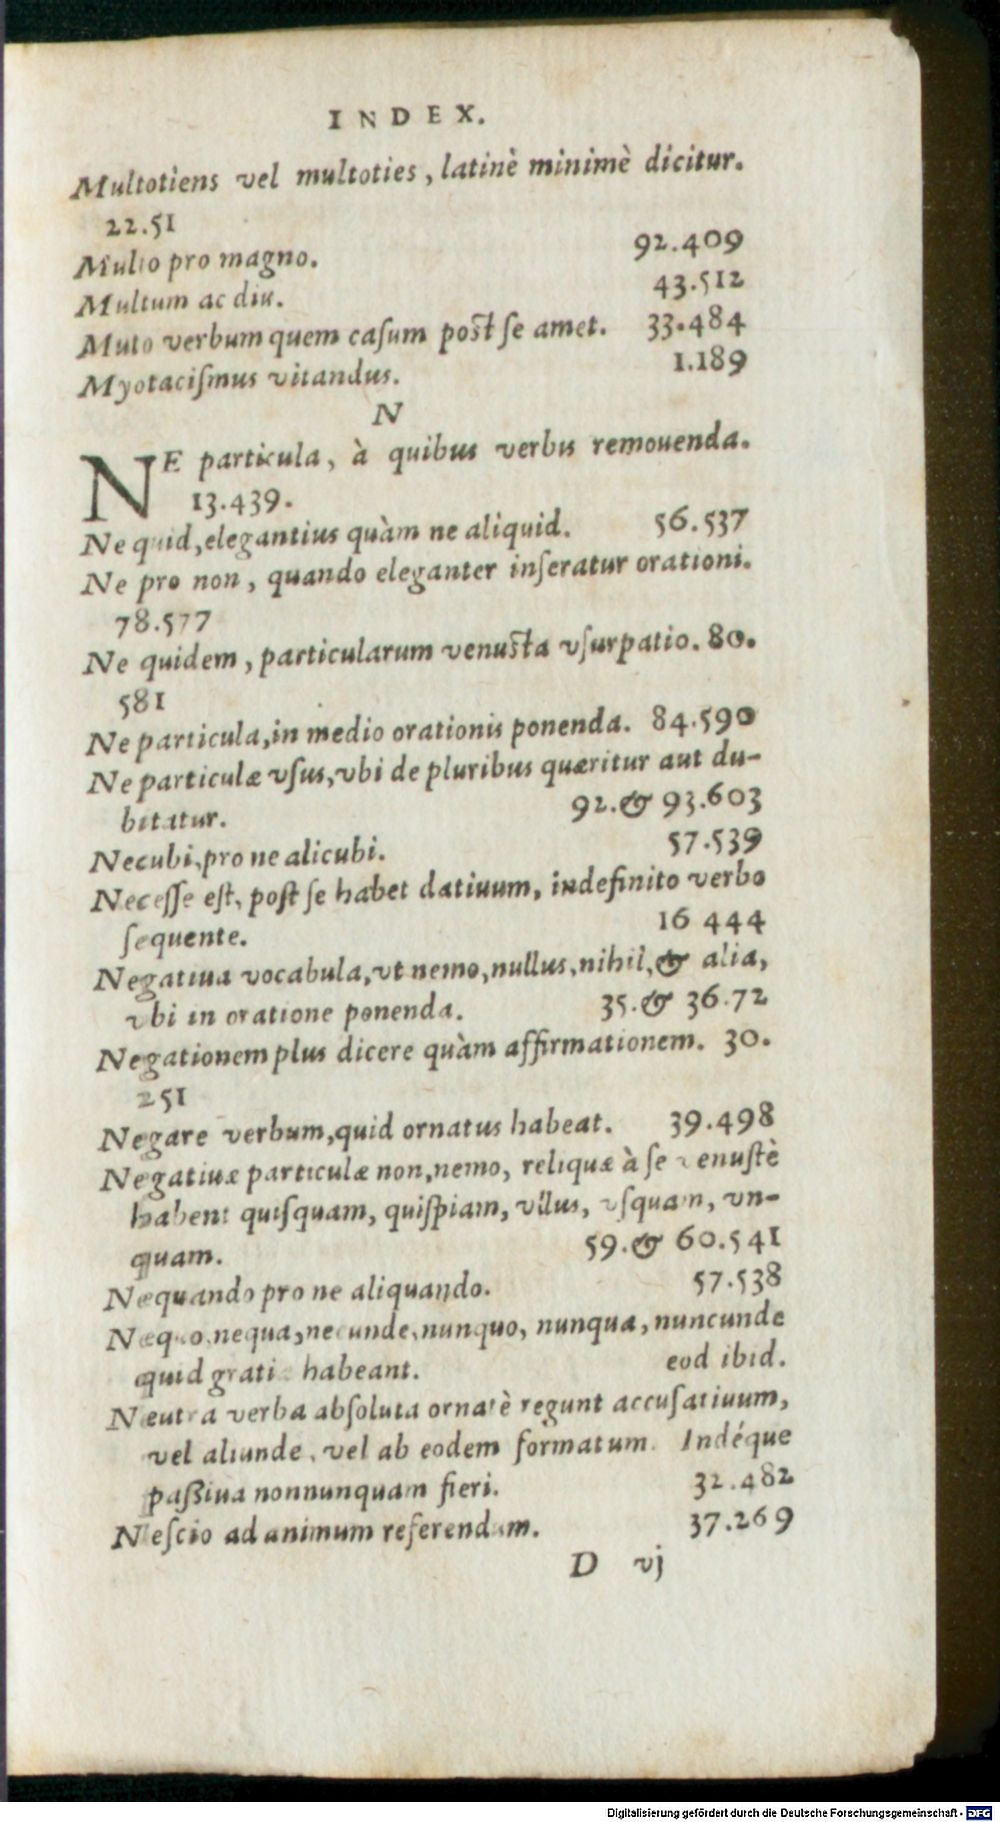 INDEX.
Multotiens vel multoties, latinè minimè dicitur.
22.51
Multo pro magno. 92.409
Multum ac diu. 43.512
Muto verbum quem casum post se amet. 33.484
Myotacismus vitandus. 1.189
N
NE particula, à quibus verbis remouenda.
13.439.
Ne quid, elegantius quàm ne aliquid. 56.537
Ne pro non, quando eleganter inseratur orationi.
78.577
Ne quidem, particularum venusta vsurpatio. 80.
581
Ne particula, in medio orationis ponenda. 84.590
Ne particulæ vsus, vbi de pluribus quæritur aut du-
bitatur. 92.& 93.603
Necubi, pro ne alicubi. 57.539
Necesse est, post se habet datiuum, indefinito verbo
sequente. 16 444
Negatiua vocabula, vt nemo, nullus, nihil, & alia,
vbi in oratione ponenda. 35.& 36.72
Negationem plus dicere quàm affirmationem. 30.
251
Negare verbum, quid ornatus habeat. 39.498
Negatiuæ particulæ non, nemo, reliquæ à se venustè
habent quisquam, quispiam, vllus, vsquam, vn-
quam. 59.& 60.541
Nequando pro ne aliquando. 57.538
Nequo, nequa, necunde, nunquo, nunqua, nuncunde
quid gratiæ habeant. eod ibid.
Neutra verba absoluta ornatè regunt accusatiuum,
vel aliunde, vel ab eodem formatum. Indéque
passiua nonnunquam fieri. 32.482
Nescio ad animum referendum. 37.269
D vj
Digitalisierung gefördert durch die Deutsche Forschungsgemeinschaft - DFG